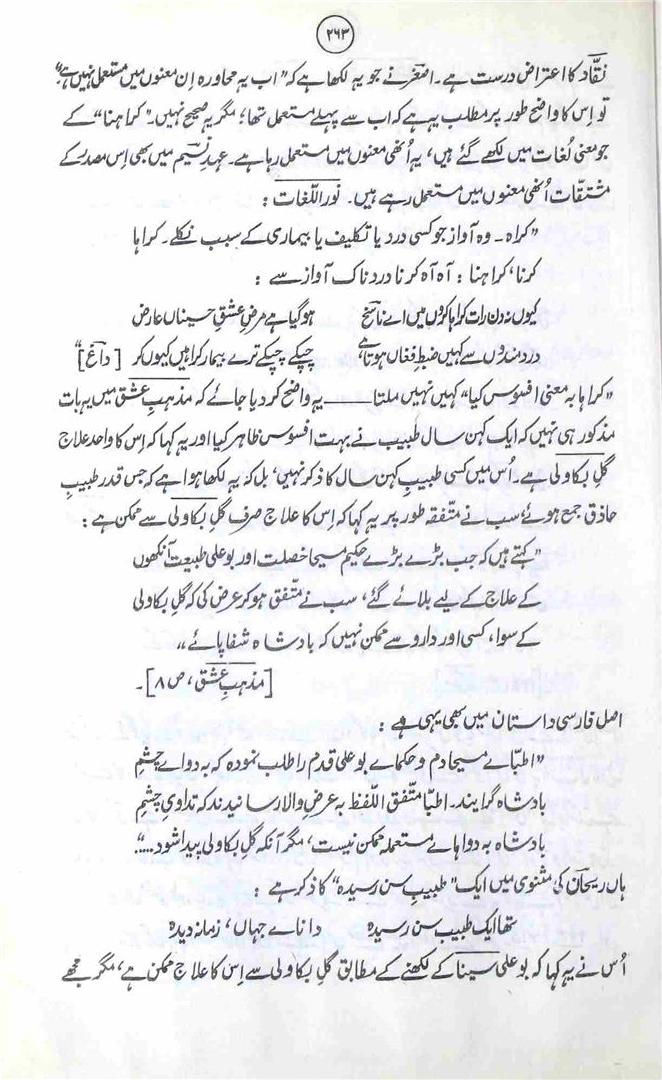 ۲۶۳
نقّاد کا اعتراض درست ہے۔ اصغر نے جو یہ لکھا ہے کہ "اب یہ محاورہ اِن معنوں میں مستعمل نہیں ہے"
تو اِس کا واضح طور پر مطلب یہ ہے کہ اب سے پہلے مستعمل تھا؛ مگر یہ صحیح نہیں۔ "کراہنا" کے
جو معنی لُغات میں لکھے گئے ہیں، یہ اُنھی معنوں میں مستعمل رہا ہے۔ عہدِ نسیم میں بھی اِس مصدر کے
مشتقّات اُنھی معنوں میں مستعمل رہے ہیں۔ نوراللّغات:
"کراہ۔ وہ آواز جو کسی درد یا تکلیف یا بیماری کے سبب نکلے۔ کراہا
کرنا، کراہنا: آہ آہ کرنا دردناک آواز سے:
کیوں نہ دن رات کراہا کروں میں اے ناسخ ہوگیا ہے مرضِ عشقِ حسیناں عارض
دردمندوں سے کہیں ضبطِ فغاں ہوتا ہے چپکے چپکے ترے بیمار کراہیں کیوں کر [داغ]"
"کراہا بہ معنی افسوس کیا" کہیں نہیں ملتا ــــــ یہ واضح کردیا جائے کہ مذہبِ عشق میں یہ بات
مذکور ہی نہیں کہ ایک کہن سال طبیب نے بہت افسوس ظاہر کیا اور یہ کہا کہ اِس کا واحد علاج
گلِ بکاولی ہے۔ اُس میں کسی طبیبِ کہن سال کا ذکر نہیں، بل کہ یہ لکھا ہوا ہے کہ جس قدر طبیبِ
حاذق جمع ہوئے سب نے متّفقہ طور پر یہ کہا کہ اِس کا علاج صرف گلِ بکاولی سے ممکن ہے:
"کہتے ہیں کہ جب بڑے بڑے حکیم مسیحا خصلت اور بوعلی طبیعت آنکھوں
کے علاج کے لیے بلائے گئے، سب نے متّفق ہوکر عرض کی کہ گلِ بکاولی
کے سوا، کسی اور دارو سے ممکن نہیں کہ بادشاہ شفا پائے"
[مذہبِ عشق، ص ۸]۔
اصل فارسی داستان میں بھی یہی ہے:
"اطبّاے مسیحا دم و حکماے بوعلی قدم را طلب نمودہ کہ بہ دواے چشمِ
بادشاہ گرایند۔ اطبّا متّفق اللّفظ بہ عرضِ والا رسانیدند کہ تداویِ چشمِ
بادشاہ بہ دواہاے مستعملہ ممکن نیست، مگر آنکہ گلِ بکاولی پیدا شود....."
ہاں ریحان کی مثنوی میں ایک "طبیبِ سن رسیدہ" کا ذکر ہے:
تھا ایک طبیب سن رسیدہ داناے جہاں، زمانہ دیدہ
اُس نے یہ کہا کہ بوعلی سینا کے لکھنے کے مطابق گلِ بکاولی سے اِس کا علاج ممکن ہے، مگر مجھے